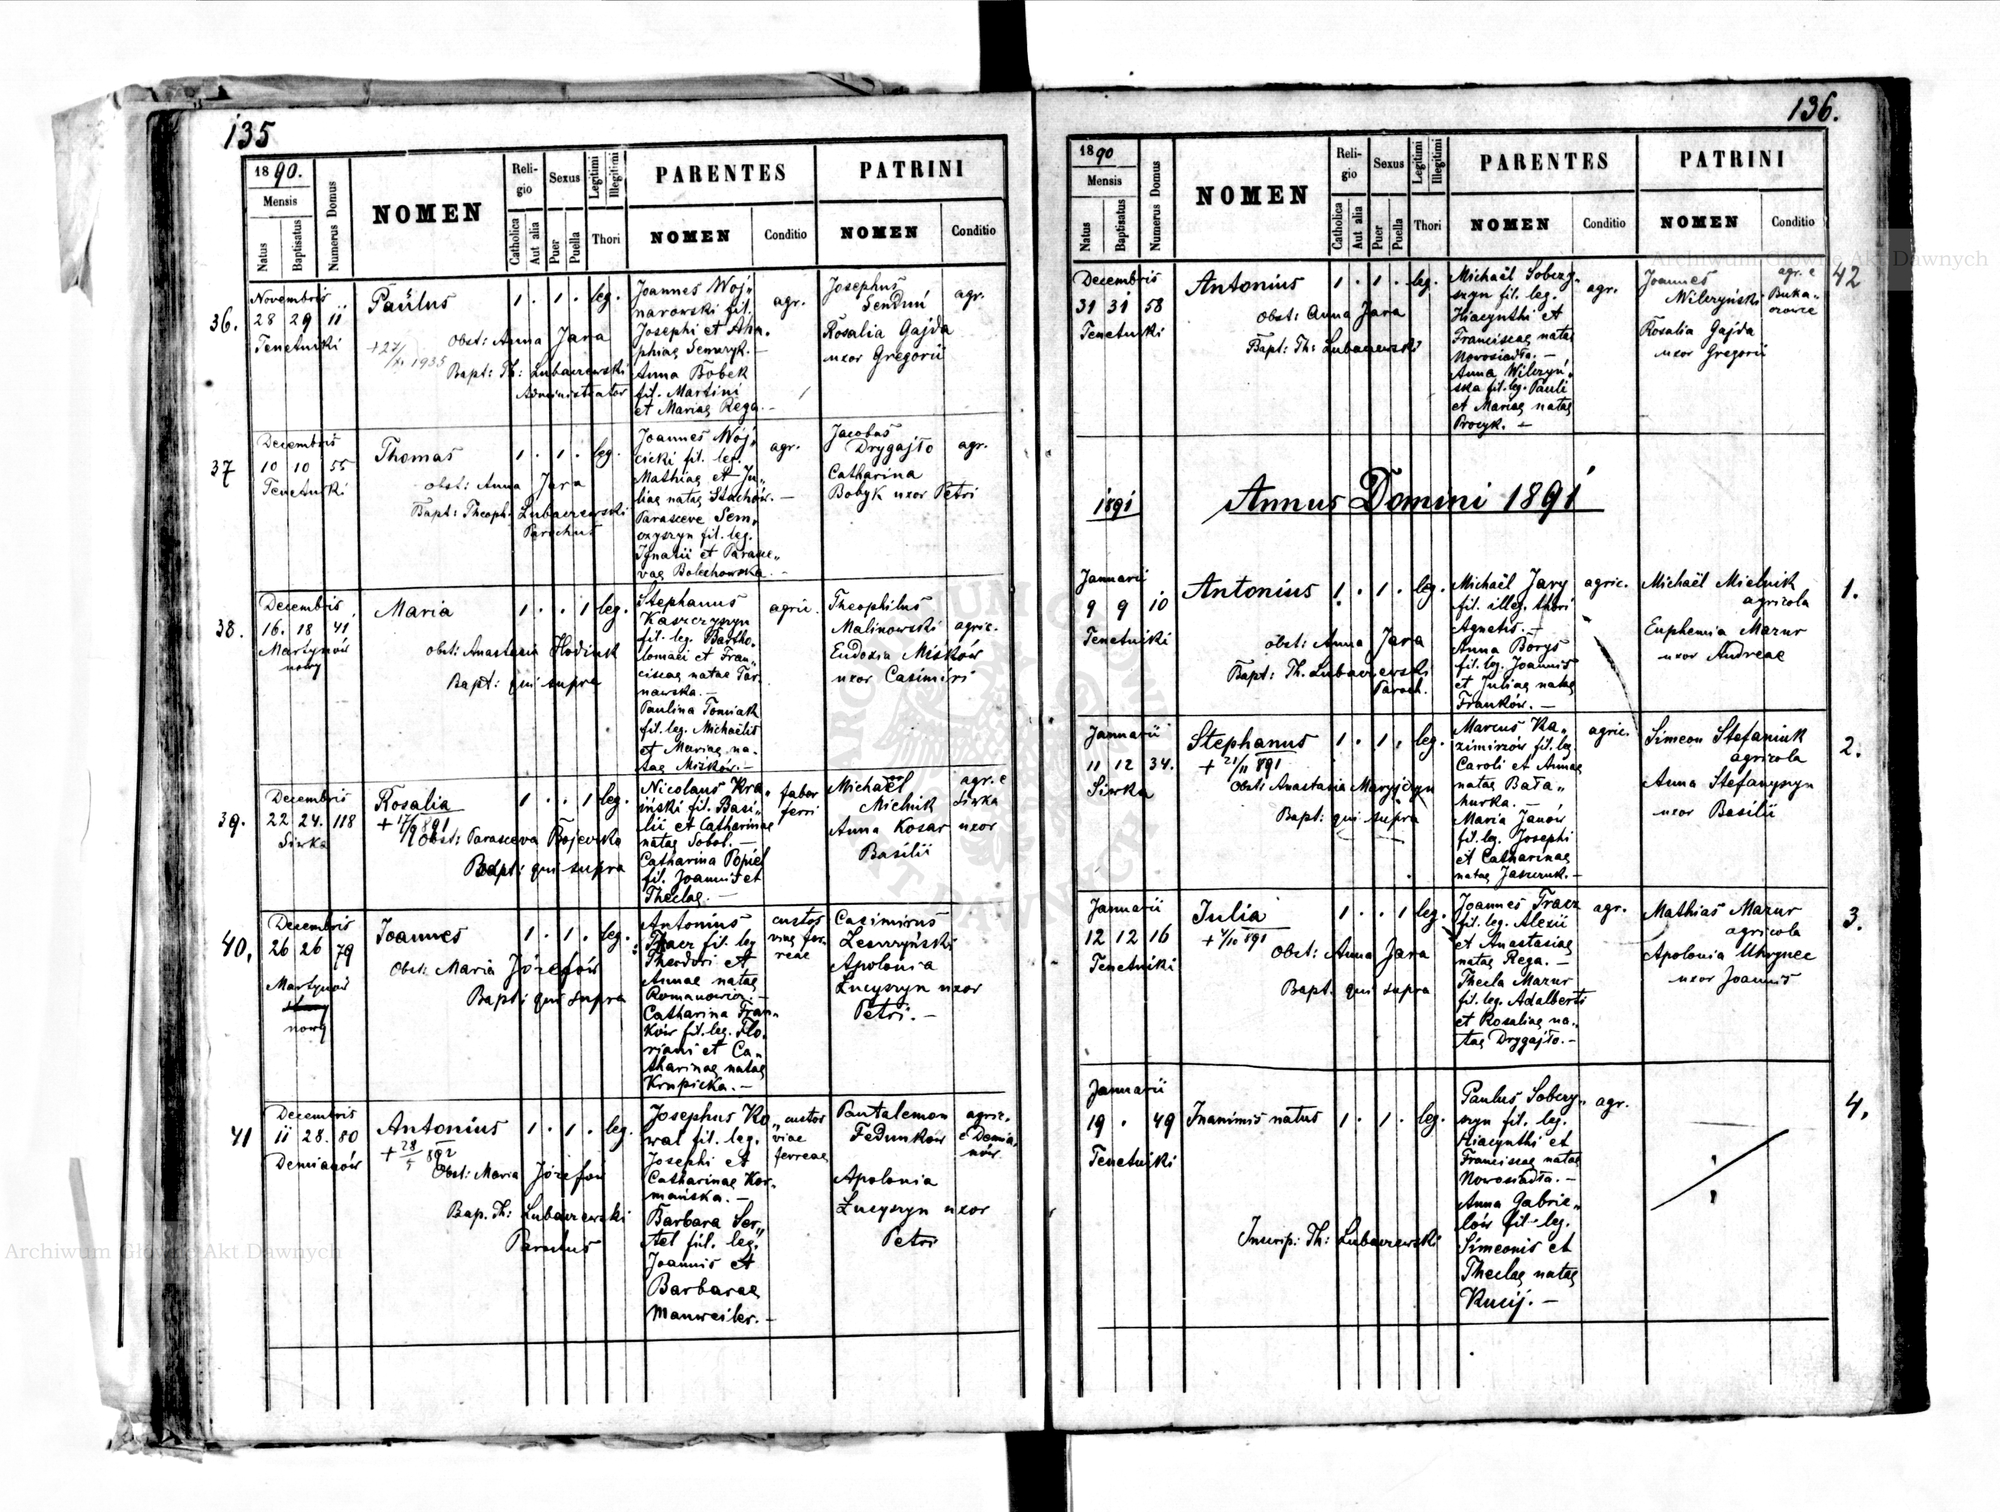 135
1890.
Mensis
Natus
Baptisatus
Numerus Domus
NOMEN
Religio
Catholica
Aut alia
Sexus
Puer
Puella
Legitimi
Illegitimi
Thori
PARENTES
NOMEN
Conditio
PATRINI
NOMEN
Conditio
36.
Novembris
28 29 11
Tenetniki
Paulus
1 . 1 . leg.
Obst: Anna Jara
Bapt: Th: Lubaczewski
Administrator
Joannes Woj„
narowski fil.
Josephi et
Anna Bobek
fil. Martini
et Mariae Rega. —
agr.
Josephus
Rosalia Gajda
uxor Gregorii
agr.
37
Decembris
10 10 55
Tenetniki
Thomas
1 . 1 . leg.
Obst: Anna Jara
Bapt: Theoph. Lubaczewski
Parochus
Joannes Woj„
cicki fil. leg.
Mathiae et Ju„
liae natae Stachów. —
Parasceve Sem„
czyszyn fil. leg.
Ignatii et Parasce„
vae Bolechowska. —
agr.
Jacobus
Drygajło
Catharina
Bobyk uxor Petri
agr.
38.
Decembris
16. 18 41
Martynów
nowy
Maria
1 . . 1 leg.
Obst: Anastasia Hodiuk
Bapt: qui supra
Stephanus
Kaszczyszyn
fil. leg. Bartho„
lomaei et Fran„
ciscae natae Tar„
nawska. —
Paulina Tomiak
fil. leg. Michaelis
et Mariae na„
tae Miśków. —
agric.
Theophilus
Malinowski
Eudoxia Miśków
uxor Casimiri
agric.
39.
Decembris
22 24. 118
Siwka
Rosalia
+ 17/9 891
1 . . 1 leg.
Obst: Parasceva Bojewska
Bapt: qui supra
Nicolaus Kra„
iński fil. Basi„
lii et Catharinae
natae Sobol. —
Catharina Popiel
fil. Joannis et
Theclae. —
faber
ferri
Michaël
Mielnik
Anna Kosar uxor
Basilii
agr. e
Siwka
40.
Decembris
26 26 79
Martynów
nowy
Joannes
1 . 1 . leg.
Obst: Maria Józefów
Bapt: qui supra
Antonius
Tkacz fil. leg.
Theodori et
Annae natae
Romanowicz. —
Catharina Fran„
ków fil. leg. Flo„
riani et Ca„
tharinae natae
Krupicka. —
custos
viae fer„
reae
Casimirus
Leszczyński
Apolonia
Łucyszyn uxor
Petri. —
41
Decembris
11 28. 80
Demianów
Antonius
+ 28/5 892
1 . 1 . leg.
Obst: Maria Józefów
Bap. Th: Lubaczewski
Parochus
Josephus Ko„
wal fil. leg.
Josephi et
Catharinae Kor„
mańska. —
Barbara Ser„
tel fil. leg.
Joannis et
Barbarae
Manweiler. —
custos
viae
ferreae
Pantalemon
Fedunków
Apolonia
Łucyszyn uxor
Petri
agric.
e Demia„
nów.
136.
1890
Mensis
Natus
Baptisatus
Numerus Domus
NOMEN
Religio
Catholica
Aut alia
Sexus
Puer
Puella
Legitimi
Illegitimi
Thori
PARENTES
NOMEN
Conditio
PATRINI
NOMEN
Conditio
42
Decembris
31 31 58
Tenetniki
Antonius
1 . 1 . leg.
Obst: Anna Jara
Bapt: Th: Lubaczewski
Michaël Sobczy„
szyn fil. leg.
Hiacynthi et
Franciscae natae
Nowosiadła. —
Anna Wilczyń„
ska fil. leg. Pauli
et Mariae natae
Procyk. —
agr.
Joannes
Wilczyński
Rosalia Gajda
uxor Gregorii
agr. e
Buka„
czowce
1891
Annus Domini 1891
1.
Januarii
9 9 10
Tenetniki
Antonius
1 . 1 . leg.
Obst: Anna Jara
Bapt: Th. Lubaczewski
Paroch.
Michaël Jary
fil. illeg. thori
Agnetis. —
Anna Borys
fil. leg. Joannis
et Juliae natae
Franków. —
agric.
Michaël Mielnik
agricola
Euphemia Mazur
uxor Andreae
2.
Januarii
11 12 34.
Siwka
Stephanus
+ 21/11 891
1 . 1 . leg.
Obst: Anastasia Maryjczyn
Bapt: qui supra
Marcus Ka„
zimirzów fil. leg.
Caroli et Annae
natae Bała„
hurka. —
Maria Janów
fil. leg. Josephi
et Catharinae
natae Jaszczuk. —
agric.
Simeon Stefaniuk
agricola
Anna Stefanyszyn
uxor Basilii
3.
Januarii
12 12 16
Tenetniki
Julia
1 . . 1 leg.
Obst: Anna Jara
Bapt. qui supra
Joannes Tkacz
fil. leg. Alexii
et Anastasiae
natae Rega. —
Thecla Mazur
fil. leg. Adalberti
et Rosaliae na„
tae Drygajło. —
agr.
Mathias Mazur
agricola
Apolonia Uhrynec
uxor Joannis
4.
Januarii
19 . 49
Tenetniki
Inanimis natus
1 . 1 . leg.
Inscrip: Th: Lubaczewski
Paulus Sobczy„
szyn fil. leg.
Hiacynthi et
Franciscae natae
Nowosiadła. —
Anna Gabrie„
lów fil. leg.
Simeonis et
Theclae natae
Kucij. —
agr.
Archiwum Główne Akt Dawnych
Archiwum Główne Akt Dawnych
ARCHIWUM GŁÓWNE AKT DAWNYCH